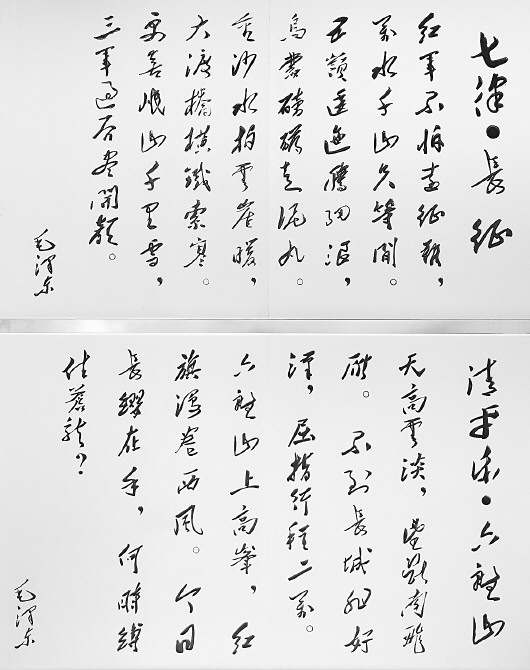 七律·長征
红軍不怕遠征難，
萬水千山只等閒。
五嶺逶迤騰细浪，
烏蒙磅礴走泥丸。
金沙水拍雲崖暖，
大渡橋橫鐵索寒。
更喜岷山千里雪，
三軍過后盡開顏。
毛澤东
清平樂·六盤山
天高雲淡，望斷南飛
雁。不到長城非好
漢，屈指行程二萬。
六盤山上高峯，红
旗漫卷西風。今日
長纓在手，何時縛
住蒼龍？
毛澤东